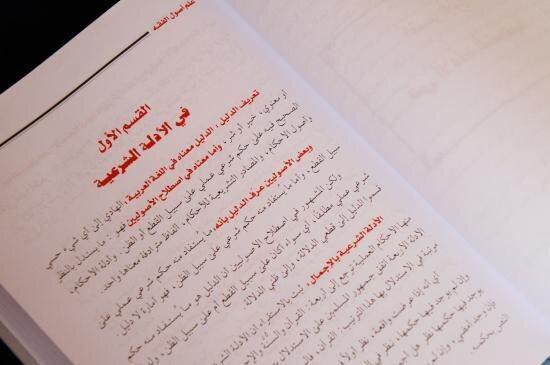 علم أصول الفقه
القسم الأول
في الأدلة الشرعية
تعريف الدليل: الدليل معناه في اللغة العربية: الهادي إلى أي شيء حسي
أو معنوي، خير أو شر، وأما معناه في اصطلاح الأصوليين فهو: ما يستدل بالنظر
الصحيح فيه على حكم شرعي عملي على سبيل القطع أو الظن. وأدلة الأحكام،
وأصول الأحكام، والمصادر الشرعية للأحكام، ألفاظ مترادفة معناها واحد.
وبعض الأصوليين عرف الدليل بأنه: ما يستفاد منه حكم شرعي عملي على
سبيل القطع. وأما ما يستفاد منه حكم شرعي على سبيل الظن، فهو أمارة لا دليل.
ولكن المشهور في اصطلاح الأصوليين أن الدليل هو ما يستفاد منه حكم
شرعي عملي مطلقاً، أي سواء أكان على سبيل القطع أم على سبيل الظن، ولهذا
قسموا الدليل إلى قطعي الدلالة، وإلى ظني الدلالة.
الأدلة الشرعية بالإجمال: ثبت بالاستقراء أن الأدلة الشرعية
منها الأحكام العملية ترجع إلى أربعة: القرآن والسنة والإجماع
الأدلة الأربعة اتفق جمهور المسلمين على الاستدلال بها
مرتبة في الاستدلال بها هذا الترتيب: القرآن، فالسنة
أي أنه إذا عرضت واقعة، نظر أولاً في
وإن لم يوجد فيها حكمها، نظر في
يوجد فيها حكمها نظر هل أجمع
فإن وجد أمضي، وإن لم
النص بحكمه.